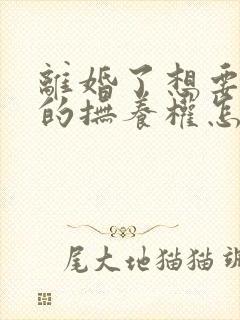 離婚了想要
的撫養權怎
尾大地猫猫